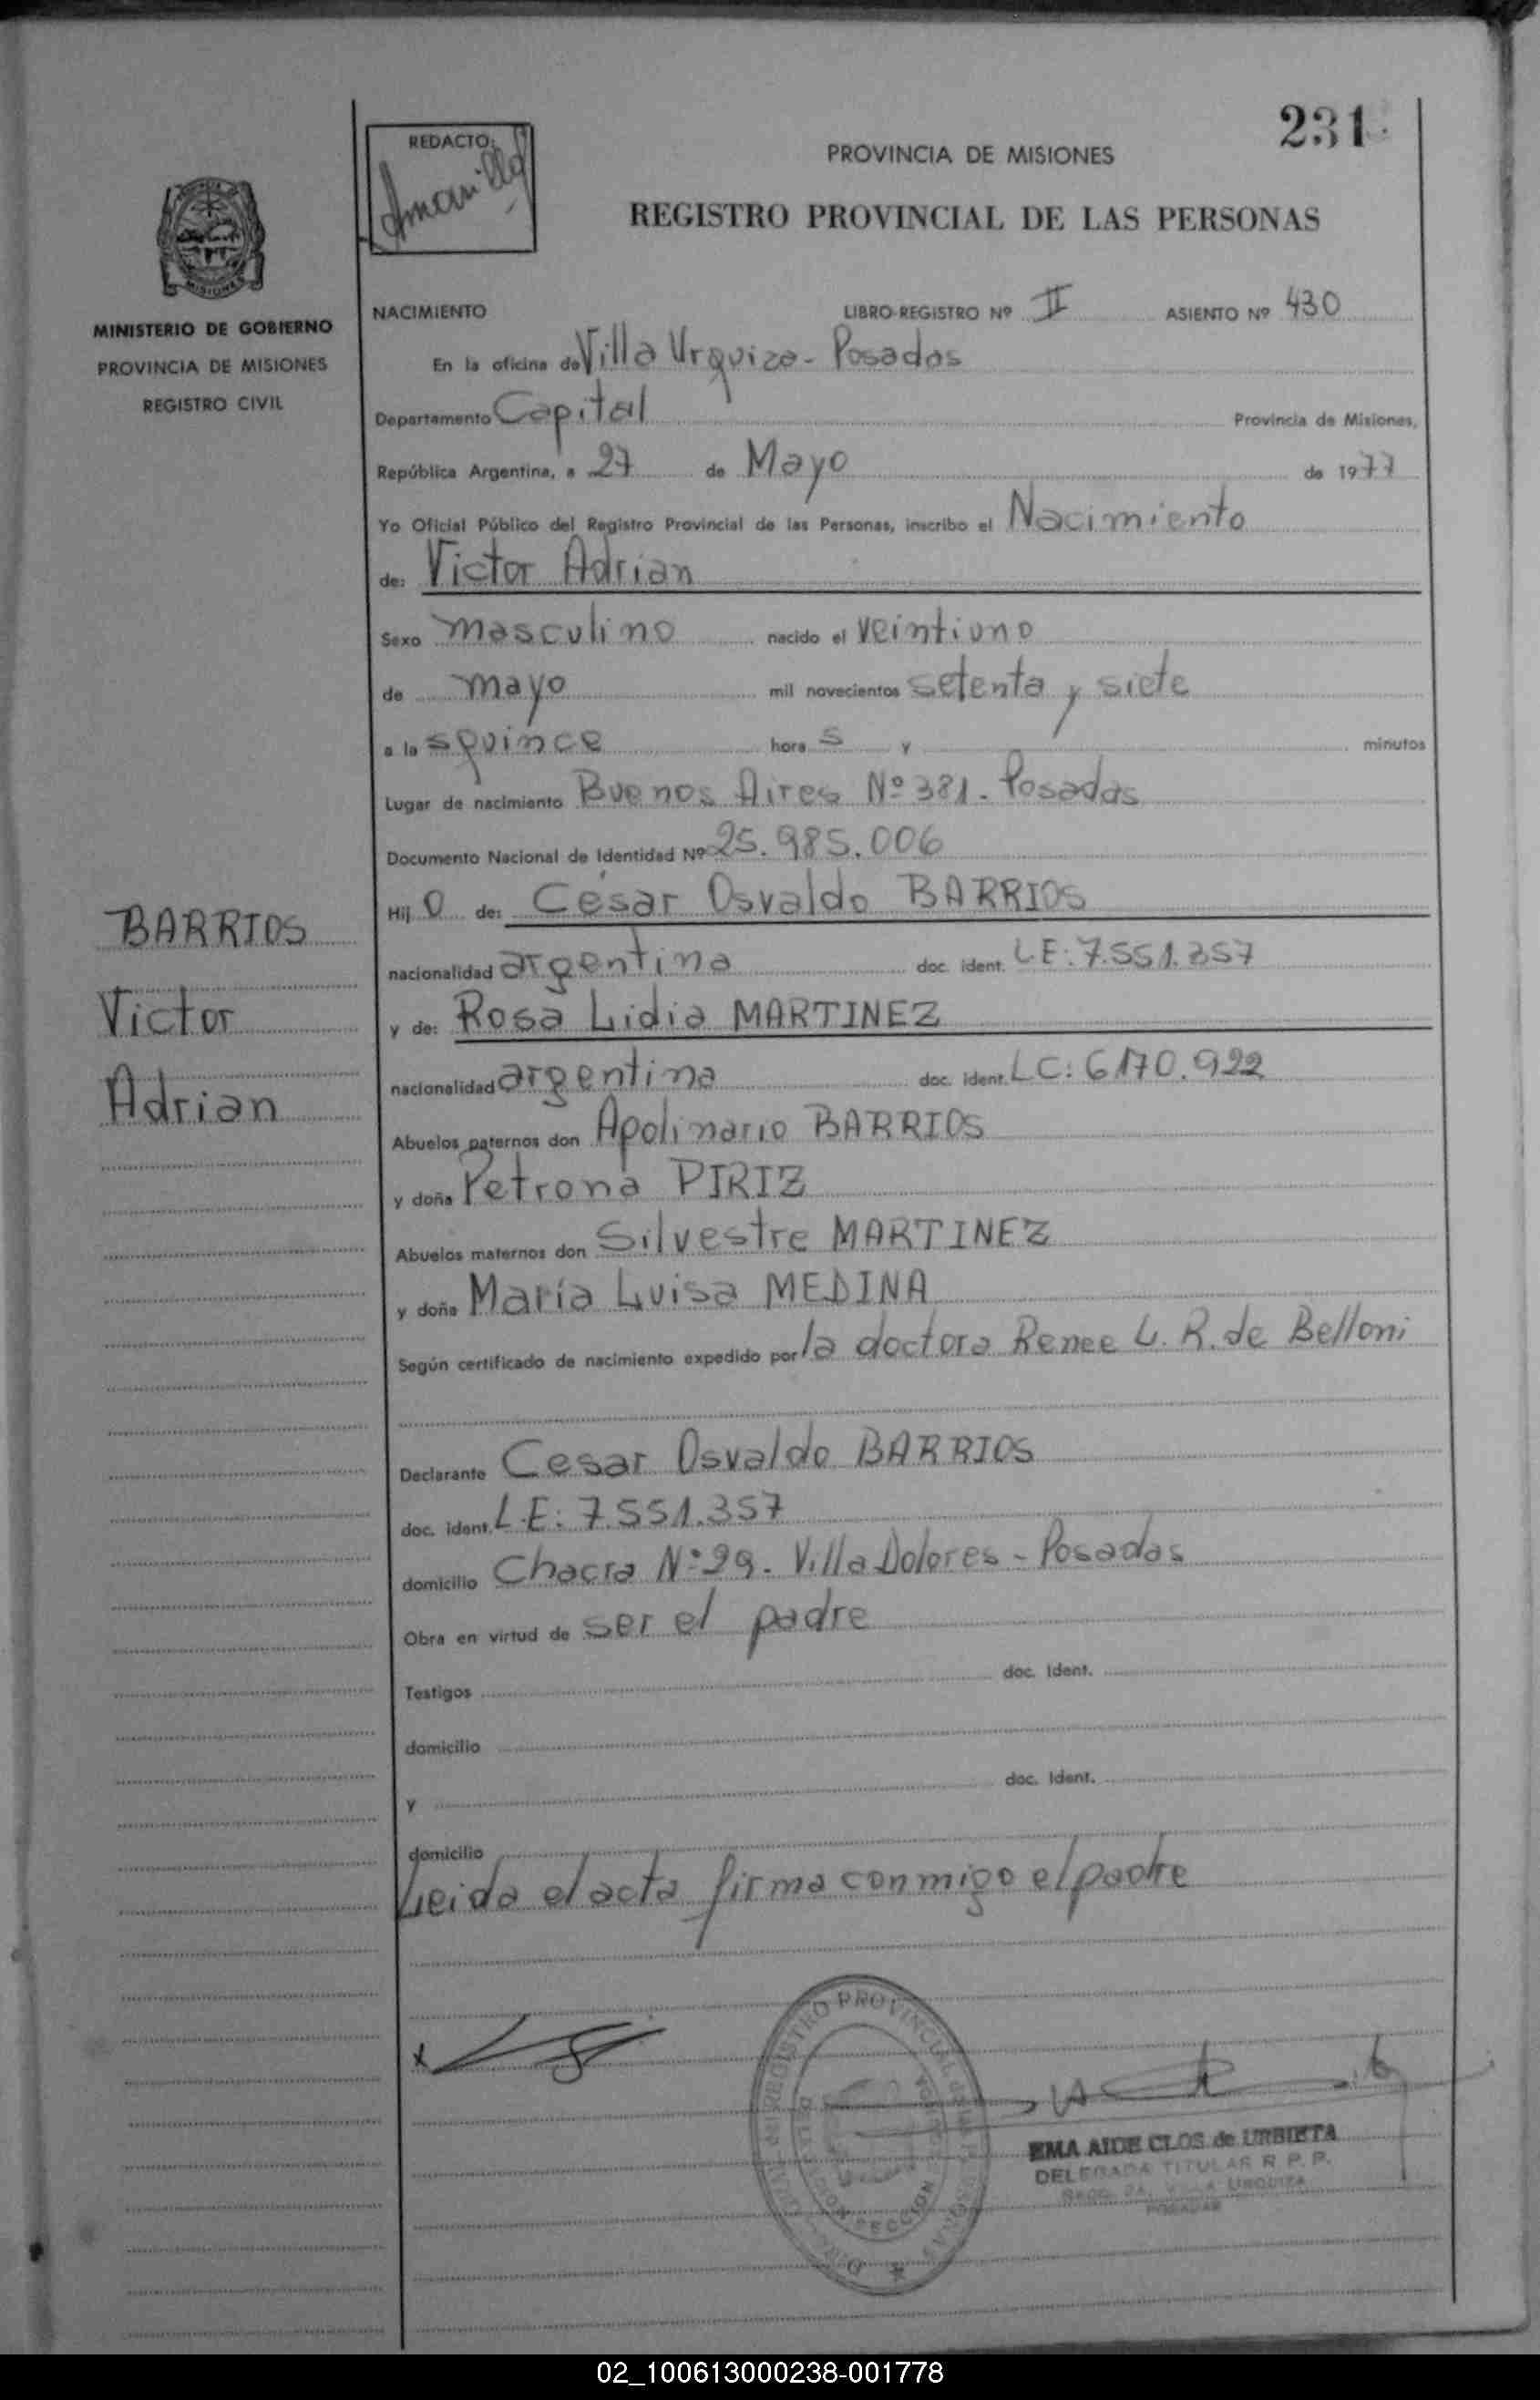 231
REDACTO:
PROVINCIA DE MISIONES
REGISTRO PROVINCIAL DE LAS PERSONAS
MISIONES
MINISTERIO DE GOBIERNO
PROVINCIA DE MISIONES
REGISTRO CIVIL
NACIMIENTO LIBRO-REGISTRO Nº II ASIENTO Nº 430
En la oficina de Villa Urquiza - Posadas
Departamento Capital Provincia de Misiones,
República Argentina, a 27 de Mayo de 1977
Yo Oficial Público del Registro Provincial de las Personas, inscribo el Nacimiento
de: Victor Adrian
Sexo masculino nacido el veintiuno
de mayo mil novecientos setenta y siete
a la s quince hora s y minutos
Lugar de nacimiento Buenos Aires Nº 381 - Posadas
Documento Nacional de Identidad Nº 25.985.006
Hij o de: César Osvaldo BARRIOS
nacionalidad argentina doc. ident. LE: 7.551.357
y de: Rosa Lidia MARTINEZ
nacionalidad argentina doc. ident. LC: 6.170.922
Abuelos paternos don Apolinario BARRIOS
y doña Petrona PIRIZ
Abuelos maternos don Silvestre MARTINEZ
y doña María Luisa MEDINA
Según certificado de nacimiento expedido por la doctora Renee L. R. de Belloni
Declarante Cesar Osvaldo BARRIOS
doc. ident. L.E: 7.551.357
domicilio Chacra Nº 29 - Villa Dolores - Posadas
Obra en virtud de ser el padre
Testigos doc. Ident.
domicilio
y doc. Ident.
domicilio
Leida el acta firma conmigo el padre
BARRIOS
Victor
Adrian
REGISTRO PROVINCIAL
SECCION
EMA AIDE CLOS de URBIETA
DELEGADA TITULAR R. P. P.
VILLA URQUIZA
POSADAS
02_100613000238-001778